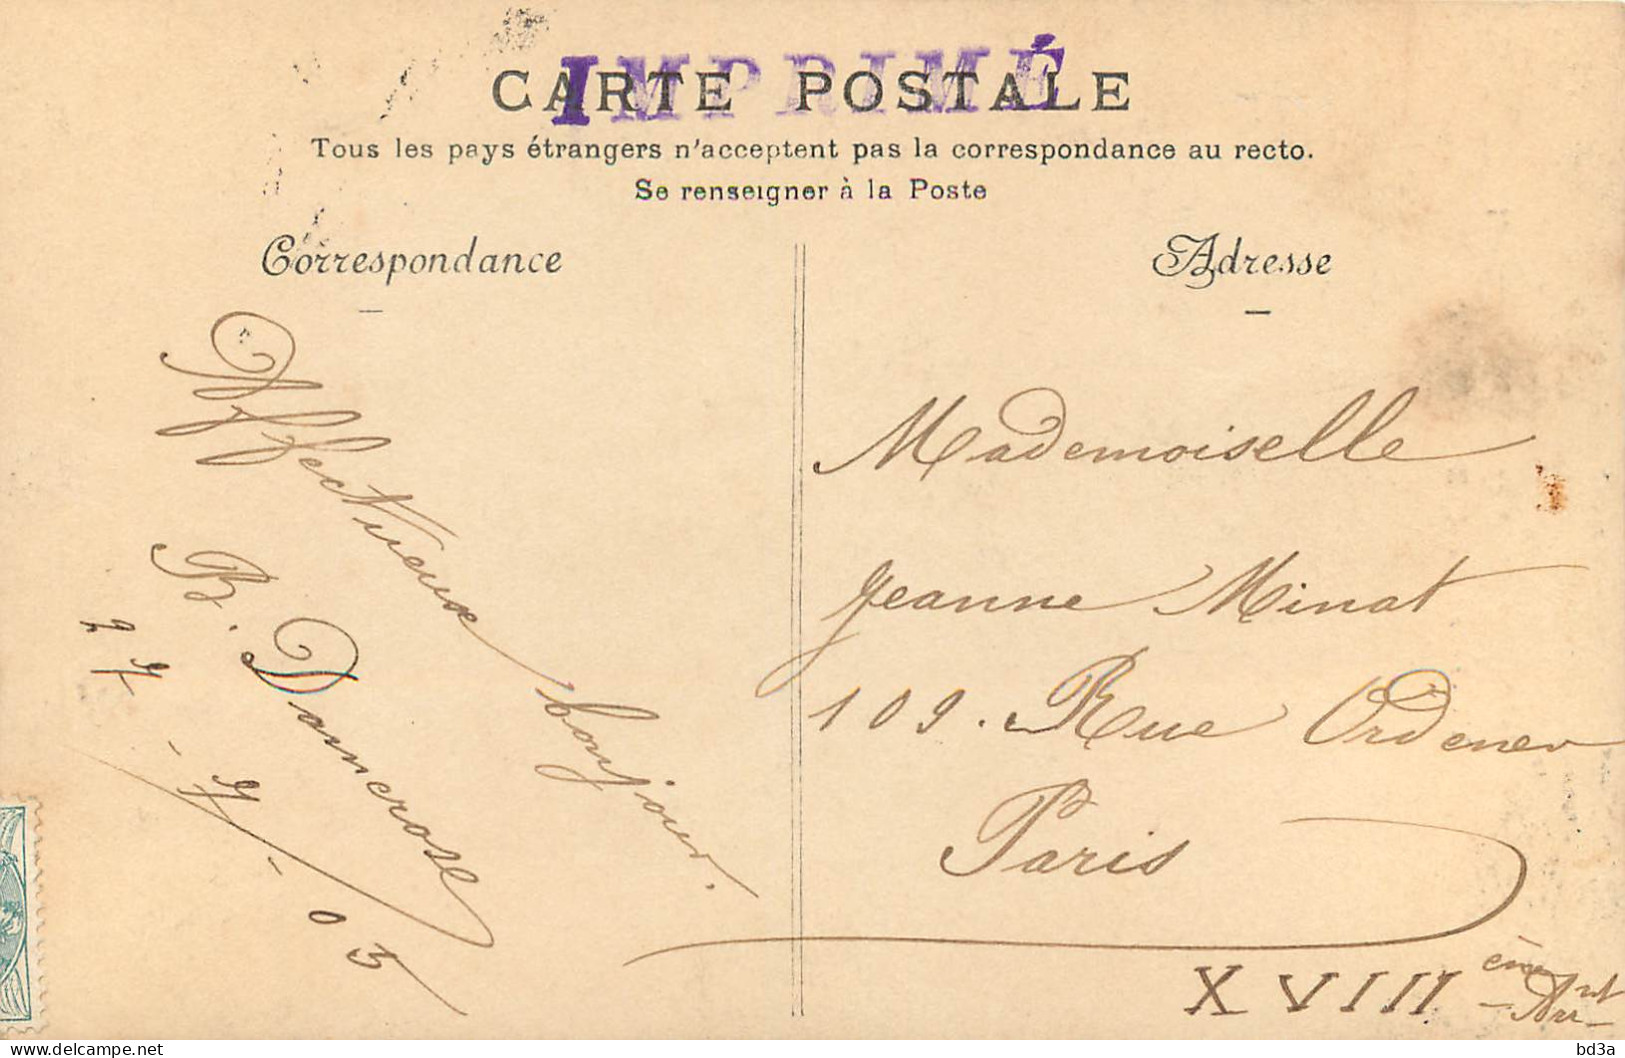 IMPRIMÉ
CARTE POSTALE
Tous les pays étrangers n'acceptent pas la correspondance au recto.
Se renseigner à la Poste
Correspondance
Affectueux bonjour.
B. Damerose
27-7-05
Adresse
Mademoiselle
Jeanne Minat
109. Rue Ordener
Paris
XVIII ème Arrnt
bd3a